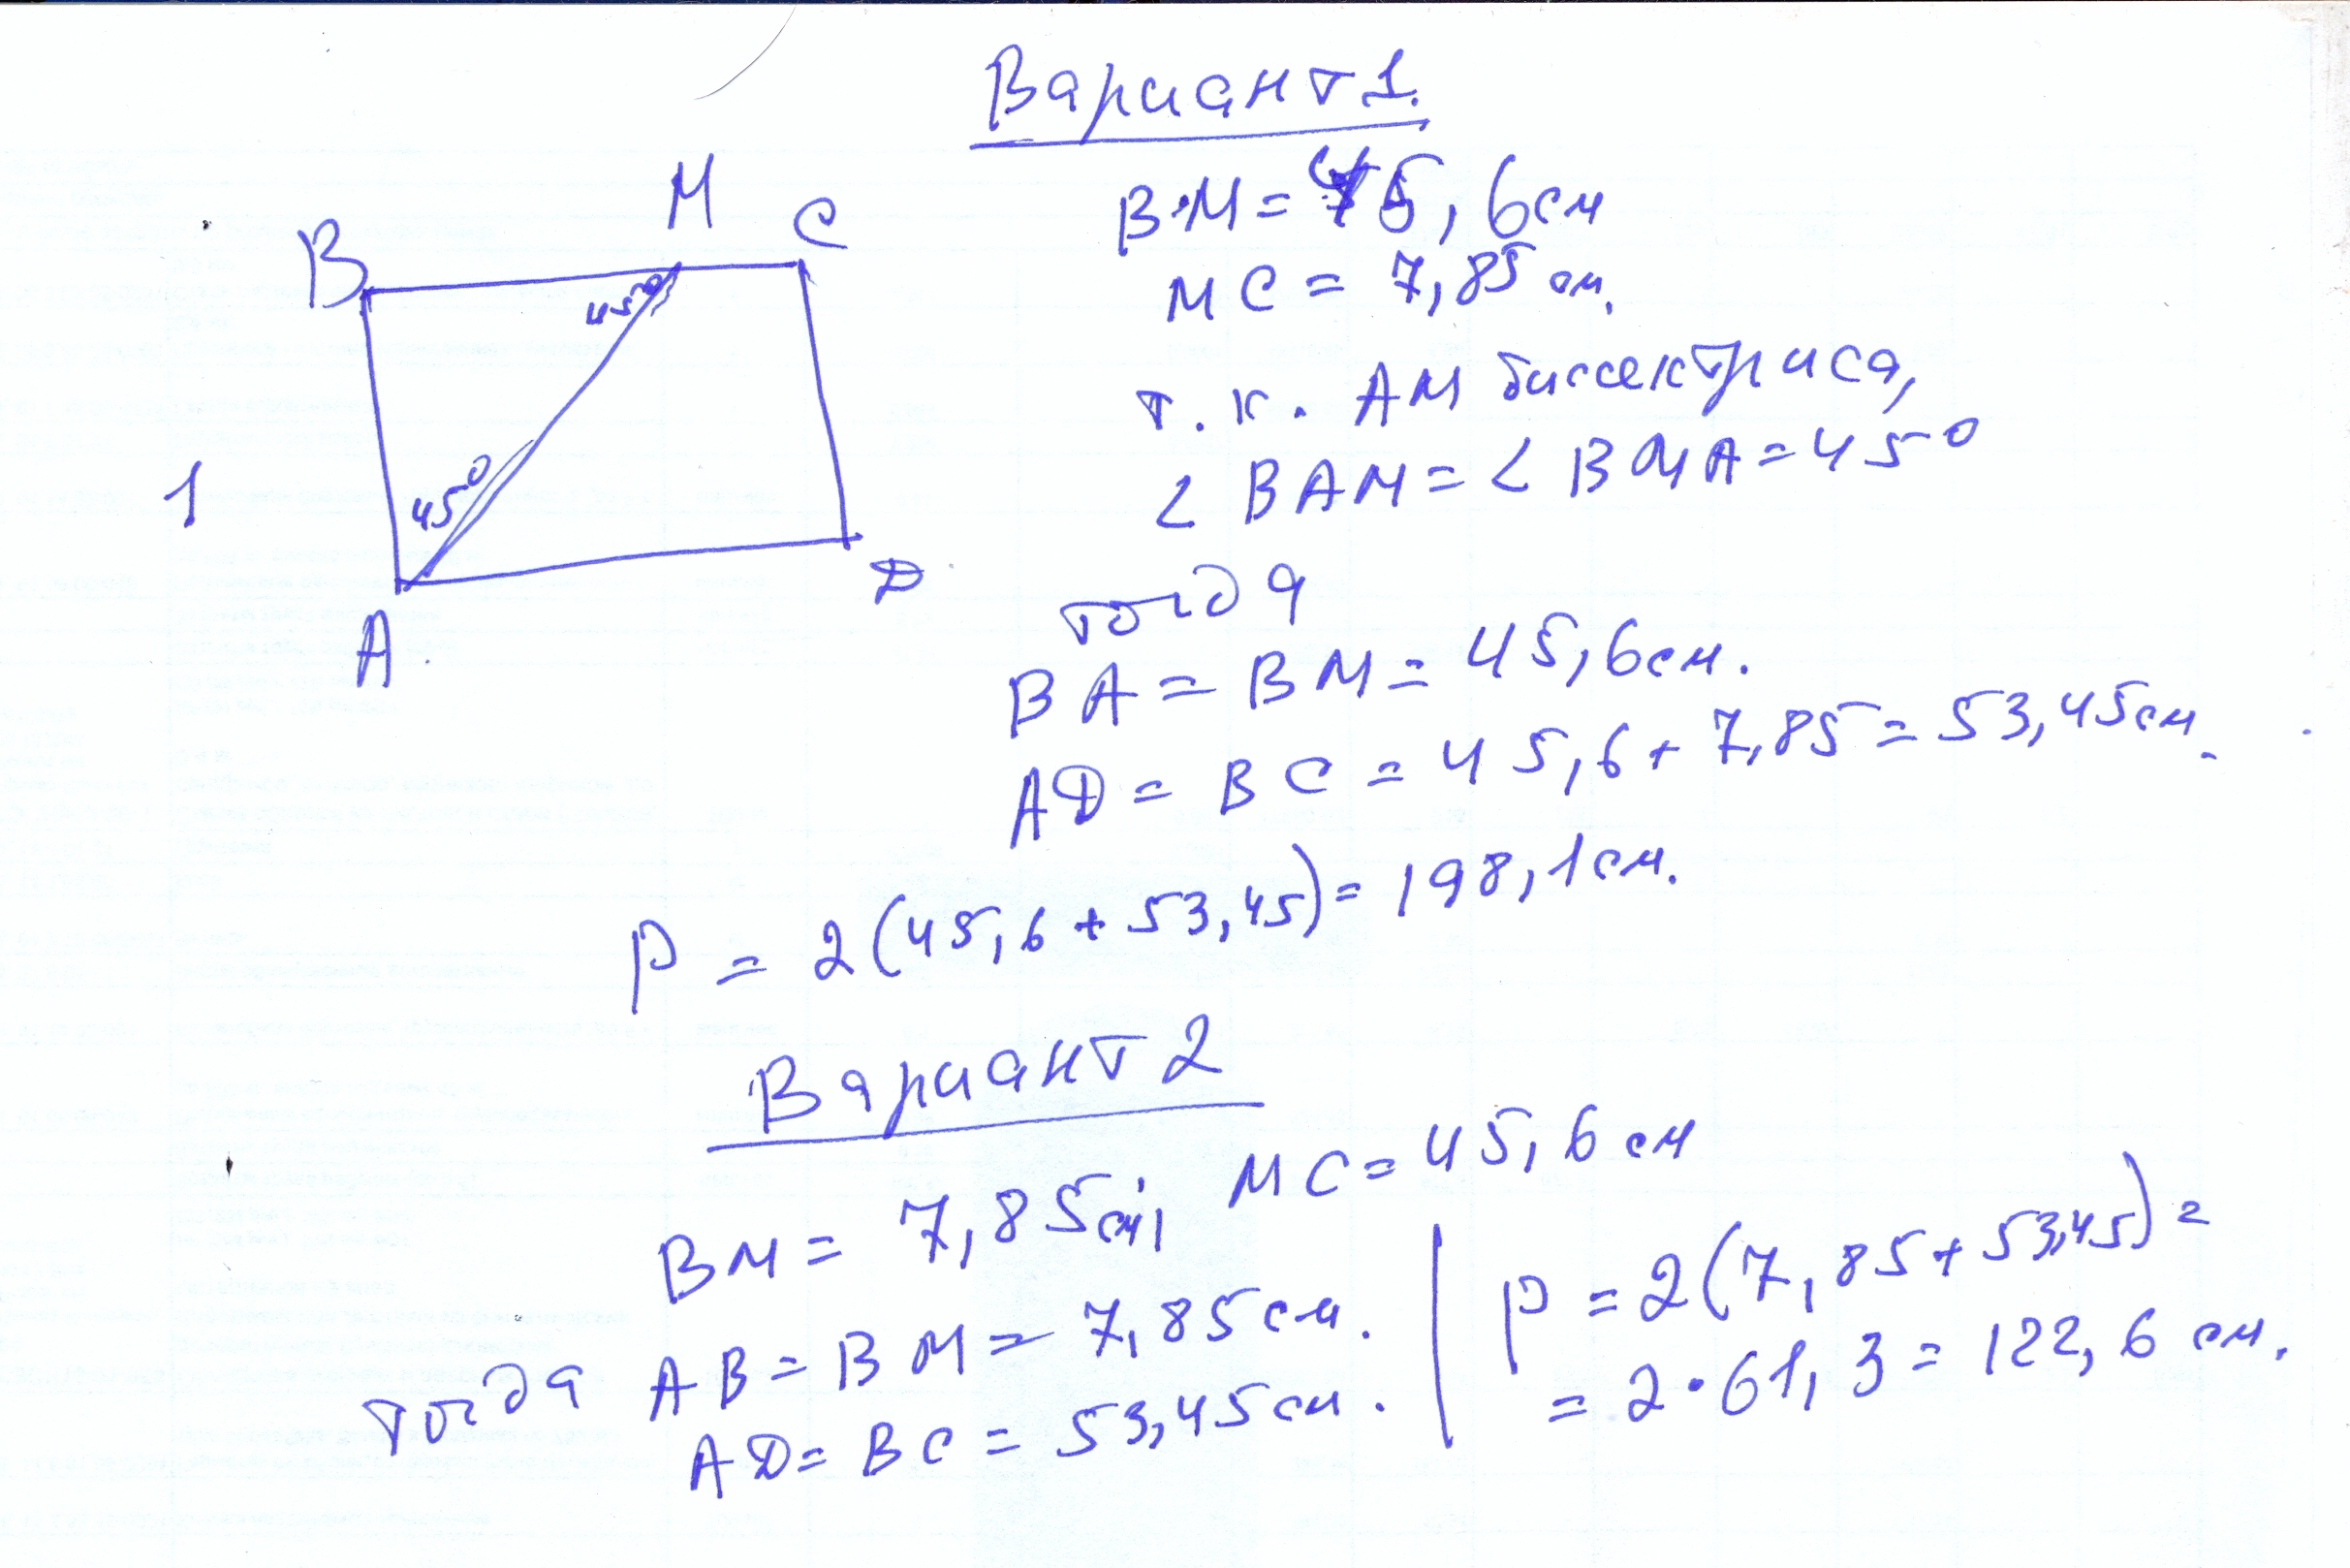 Вариант 1.
M
B
C
45°
45°
1
A
D
BM = 45,6 см
MC = 7,85 см.
т. к. AM биссектриса,
∠ BAM = ∠ BMA = 45°
тогда
BA = BM = 45,6 см.
AD = BC = 45,6 + 7,85 = 53,45 см.
P = 2(45,6 + 53,45) = 198,1 см.
Вариант 2
BM = 7,85 см; MC = 45,6 см
тогда AB = BM = 7,85 см.
AD = BC = 53,45 см.
P = 2(7,85 + 53,45) =
= 2·61,3 = 122,6 см.